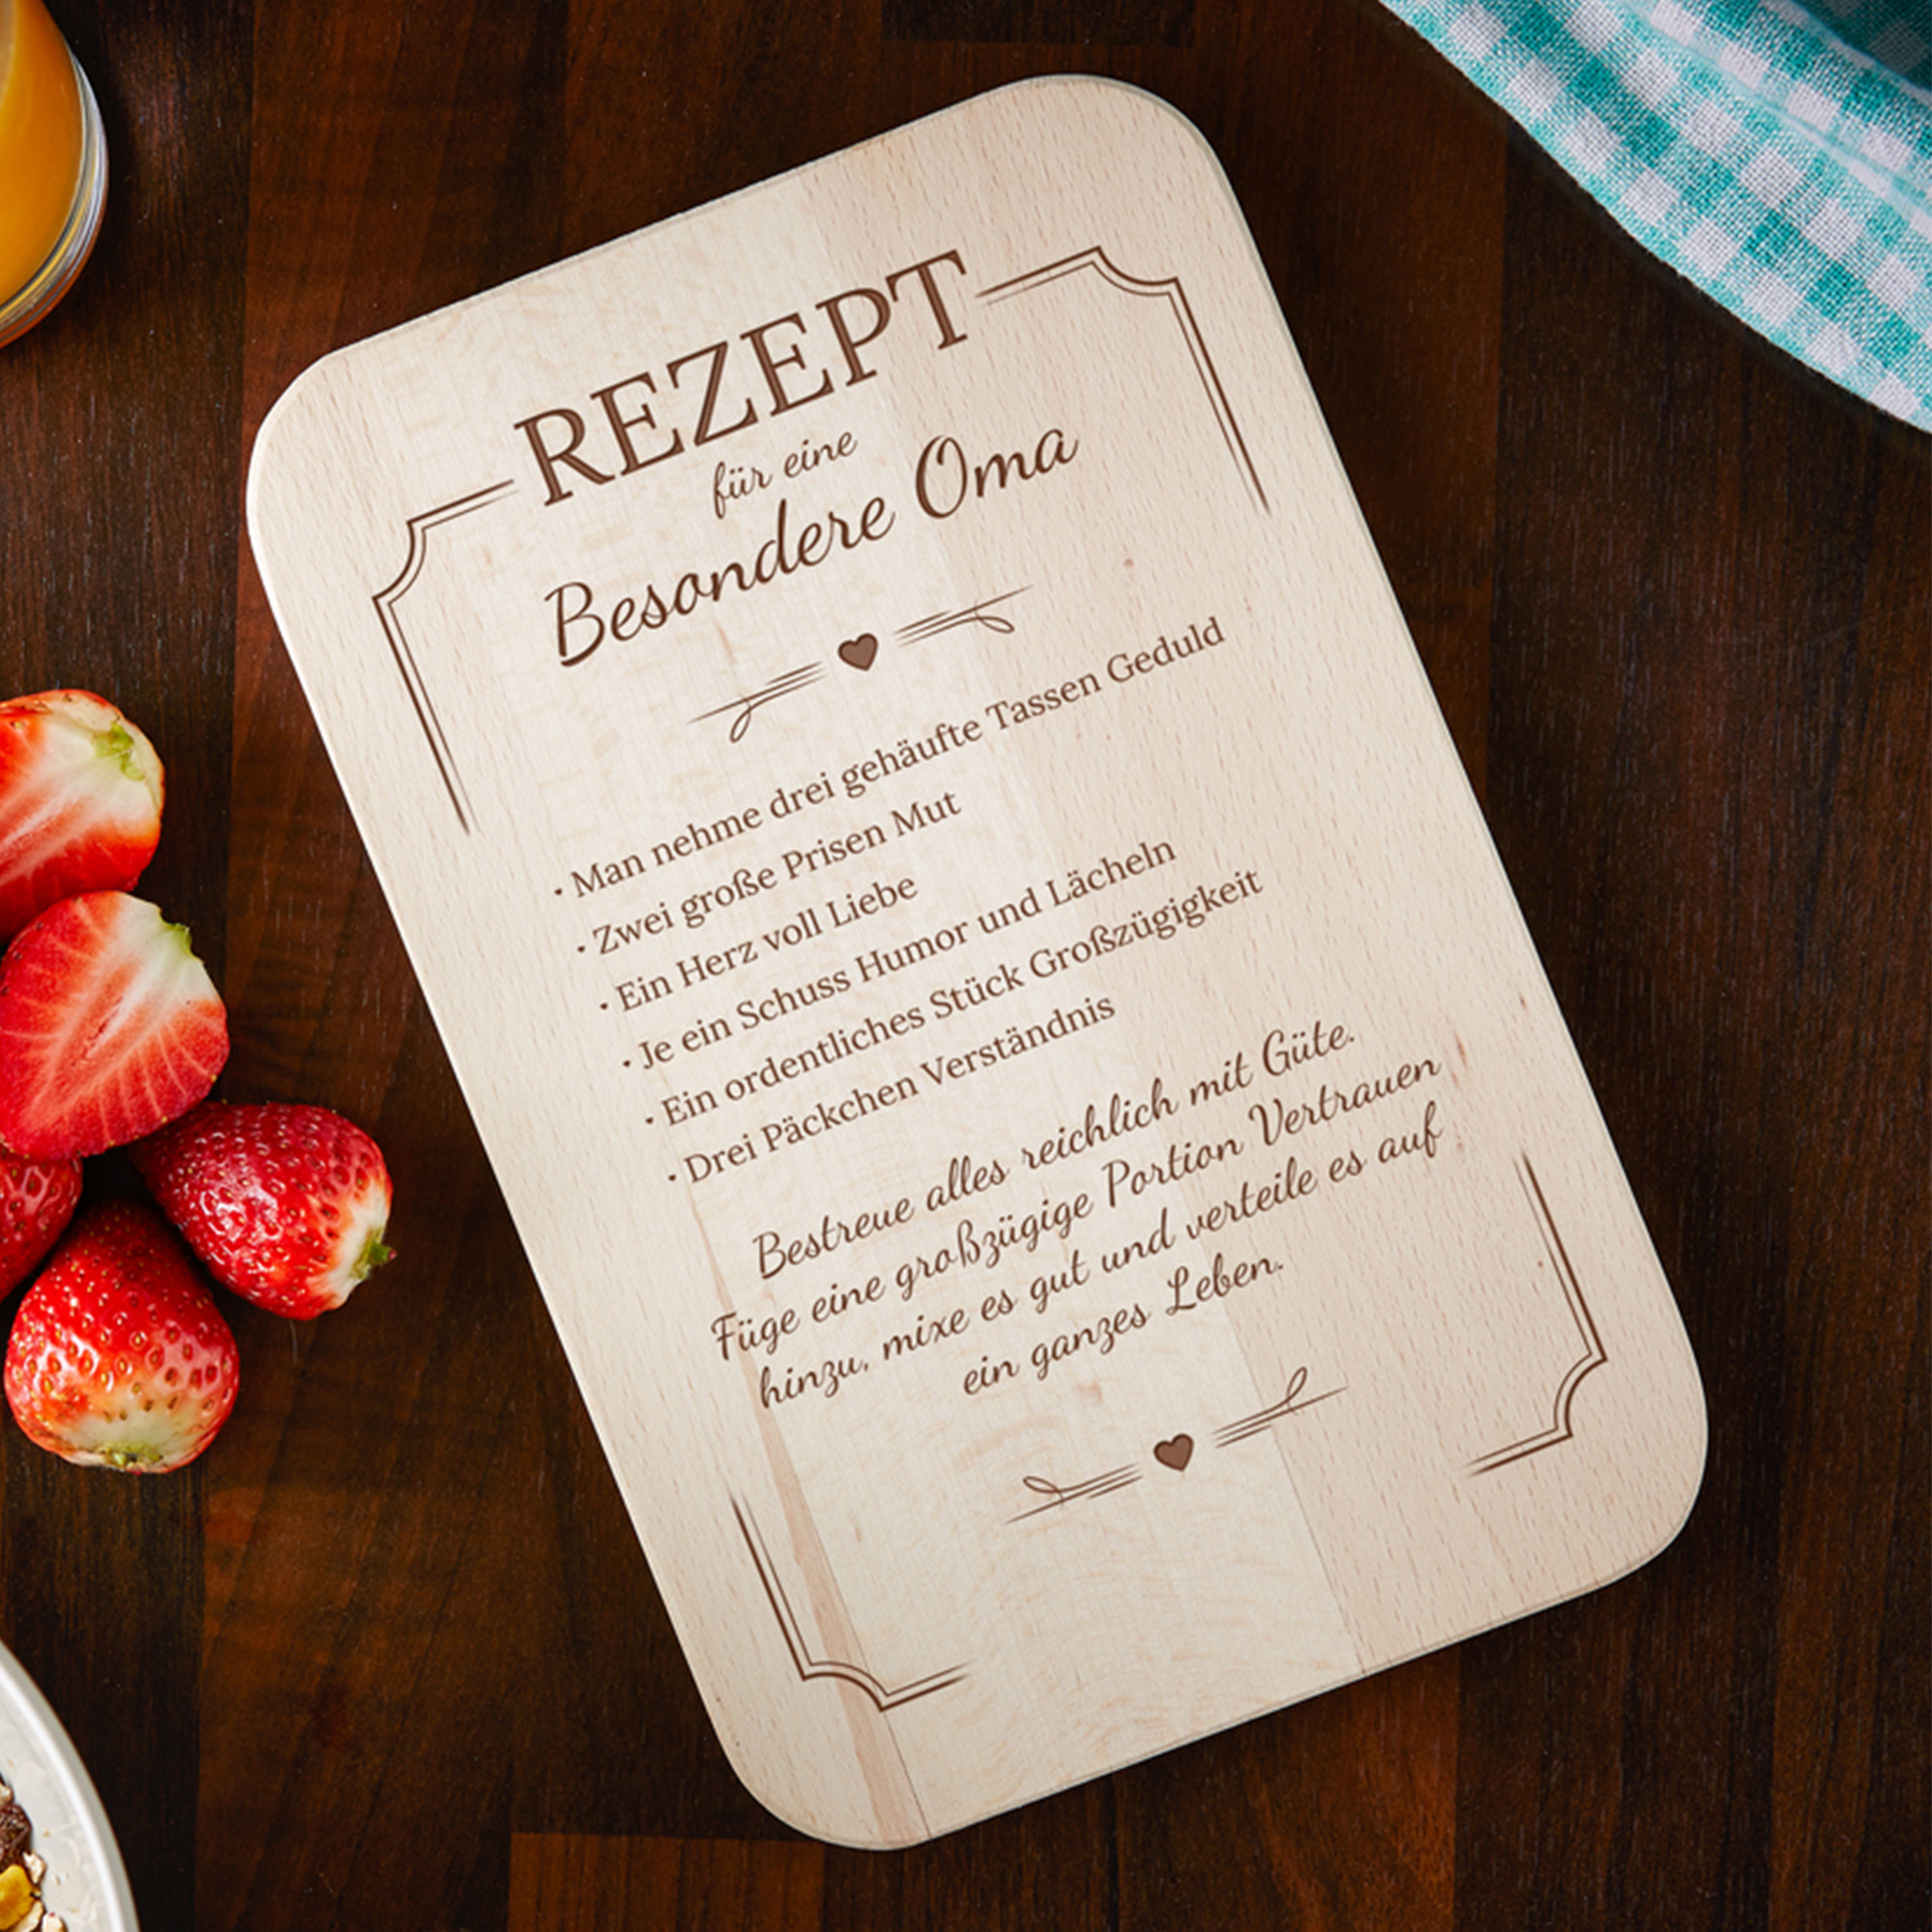 REZEPT
für eine
Besondere Oma
· Man nehme drei gehäufte Tassen Geduld
· Zwei große Prisen Mut
· Ein Herz voll Liebe
· Je ein Schuss Humor und Lächeln
· Ein ordentliches Stück Großzügigkeit
· Drei Päckchen Verständnis
Bestreue alles reichlich mit Güte.
Füge eine großzügige Portion Vertrauen
hinzu, mixe es gut und verteile es auf
ein ganzes Leben.